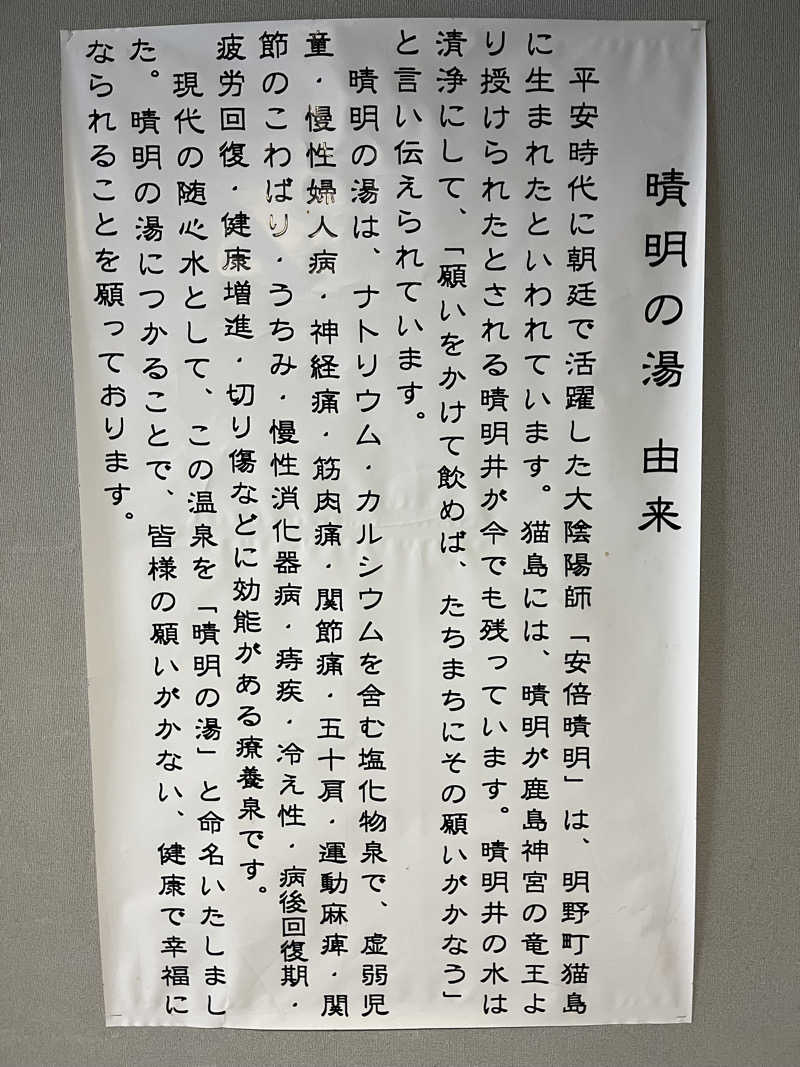 晴明の湯 由来
平安時代に朝廷で活躍した大陰陽師「安倍晴明」は、明野町猫島
に生まれたといわれています。猫島には、晴明が鹿島神宮の竜王よ
り授けられたとされる晴明井が今でも残っています。晴明井の水は
清浄にして、「願いをかけて飲めば、たちまちにその願いがかなう」
と言い伝えられています。
晴明の湯は、ナトリウム・カルシウムを含む塩化物泉で、虚弱児
童・慢性婦人病・神経痛・筋肉痛・関節痛・五十肩・運動麻痺・関
節のこわばり・うちみ・慢性消化器病・痔疾・冷え性・病後回復期・
疲労回復・健康増進・切り傷などに効能がある療養泉です。
現代の随心水として、この温泉を「晴明の湯」と命名いたしまし
た。晴明の湯につかることで、皆様の願いがかない、健康で幸福に
なられることを願っております。